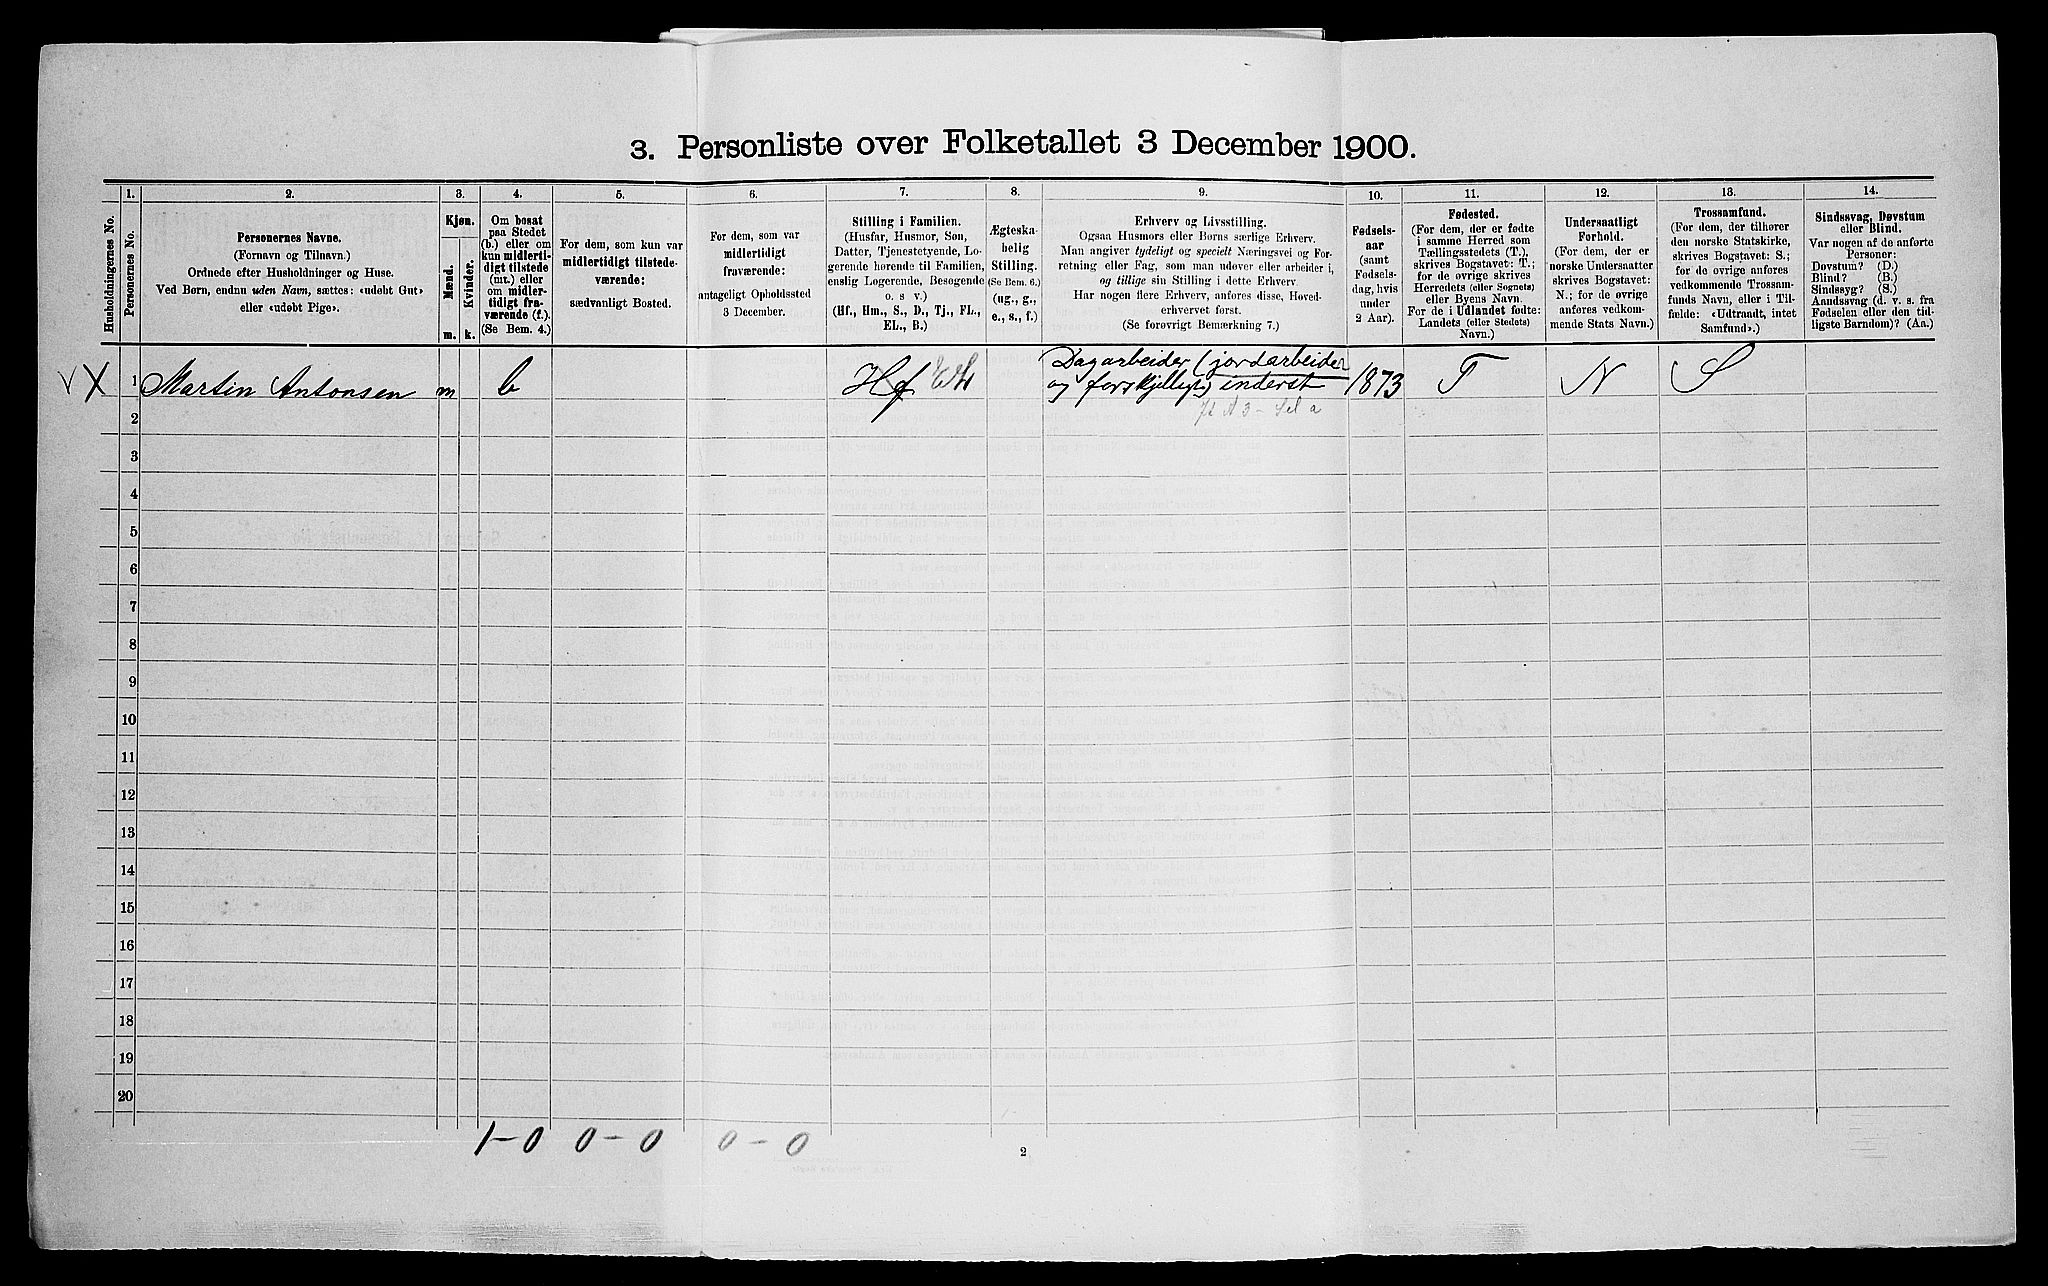 3. Personliste over Folketallet 3 December 1900.
1. 2. 3. 4. 5. 6. 7. 8. 9. 10. 11. 12. 13. 14.
Husholdningernes No.
Personernes No.
Personernes Navne.
(Fornavn og Tilnavn.)
Ordnede efter Husholdninger og Huse.
Ved Børn, endnu uden Navn, sættes: «udøbt Gut»
eller «udøbt Pige».
Kjøn.
Mænd.
Kvinder.
m. k.
Om bosat
paa Stedet
(b.) eller om
kun midlerti-
digt tilstede
(mt.) eller
om midler-
tidigt fra-
værende (f.).
(Se Bem. 4.)
For dem, som kun var
midlertidigt tilstede-
værende:
sædvanligt Bosted.
For dem, som var
midlertidigt
fraværende:
antageligt Opholdssted
3 December.
Stilling i Familien.
(Husfar, Husmor, Søn,
Datter, Tjenestetyende, Lo-
gerende hørende til Familien,
enslig Logerende, Besøgende
o. s v.)
(Hf., Hm., S., D., Tj., FL.,
EL., B.)
Ægteska-
belig
Stilling.
(Se Bem. 6.)
(ug., g.,
e., s., f.)
Erhverv og Livsstilling.
Ogsaa Husmors eller Børns særlige Erhverv.
Man angiver tydeligt og specielt Næringsvei og For-
retning eller Fag, som man udøver eller arbeider i,
og tillige sin Stilling i dette Erhverv.
Har nogen flere Erhverv, anføres disse, Hoved-
erhvervet først.
(Se forøvrigt Bemærkning 7.)
Fødsels-
aar
(samt
Fødsels-
dag, hvis
under
2 Aar).
Fødested.
(For dem, der er fødte
i samme Herred som
Tællingsstedets (T.),
skrives Bogstavet: T.;
for de øvrige skrives
Herredets (eller Sognets)
eller Byens Navn.
For de i Udlandet fødte:
Landets (eller Stedets)
Navn.)
Undersaatligt
Forhold.
(For dem, der er
norske Undersaatter
skrives Bogstavet:
N.; for de øvrige
anføres vedkom-
mende Stats Navn.)
Trossamfund.
(For dem, der tilhører
den norske Statskirke,
skrives Bogstavet: S.;
for de øvrige anføres
vedkommende Trossam-
funds Navn, eller i Til-
fælde: «Udtraadt, intet
Samfund».)
Sindssvag, Døvstum
eller Blind.
Var nogen af de anførte
Personer:
Døvstum? (D.)
Blind? (B.)
Sindssyg? (S.)
Aandssvag (d. v. s. fra
Fødselen eller den tid-
ligste Barndom)? (Aa.)
√ X 1 Martin Antonsen m b Hf El Dagarbeider (jordarbeider
og forskjelligt) inderst 1873 T N S
2
3
4
5
6
7
8
9
10
11
12
13
14
15
16
17
18
19
20
1-0 0-0 0-0
2